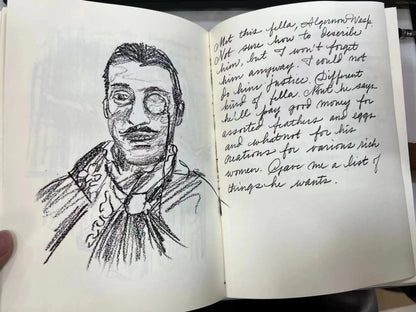 Met this fella, Algernon Wasp.
Not sure how to describe
him, but I won't forget
him anyway. I could not
do him justice. Different
kind of fella. Nout he says
he'll pay good money for
assorted feathers and eggs
and whatnot for his
creations for various rich
women. Gave me a list of
things he wants.